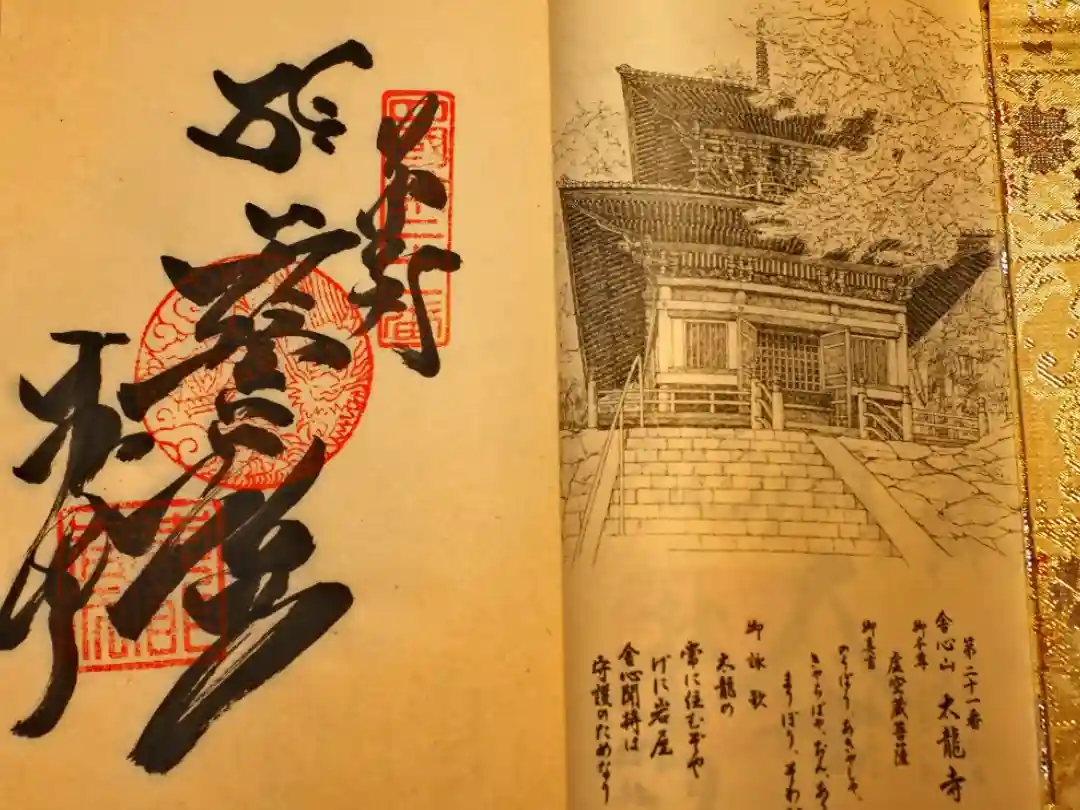 第二十一番
舎心山 太龍寺
御本尊
虚空蔵菩薩
御真言
のうぼう、あきゃしゃ、
きゃらばや、おん、あ
まりぼり、そわ
御詠歌
太龍の
常に住むぞや
げに岩屋
舎心聞持は
守護のためなり
四國第二十一番
奉拝